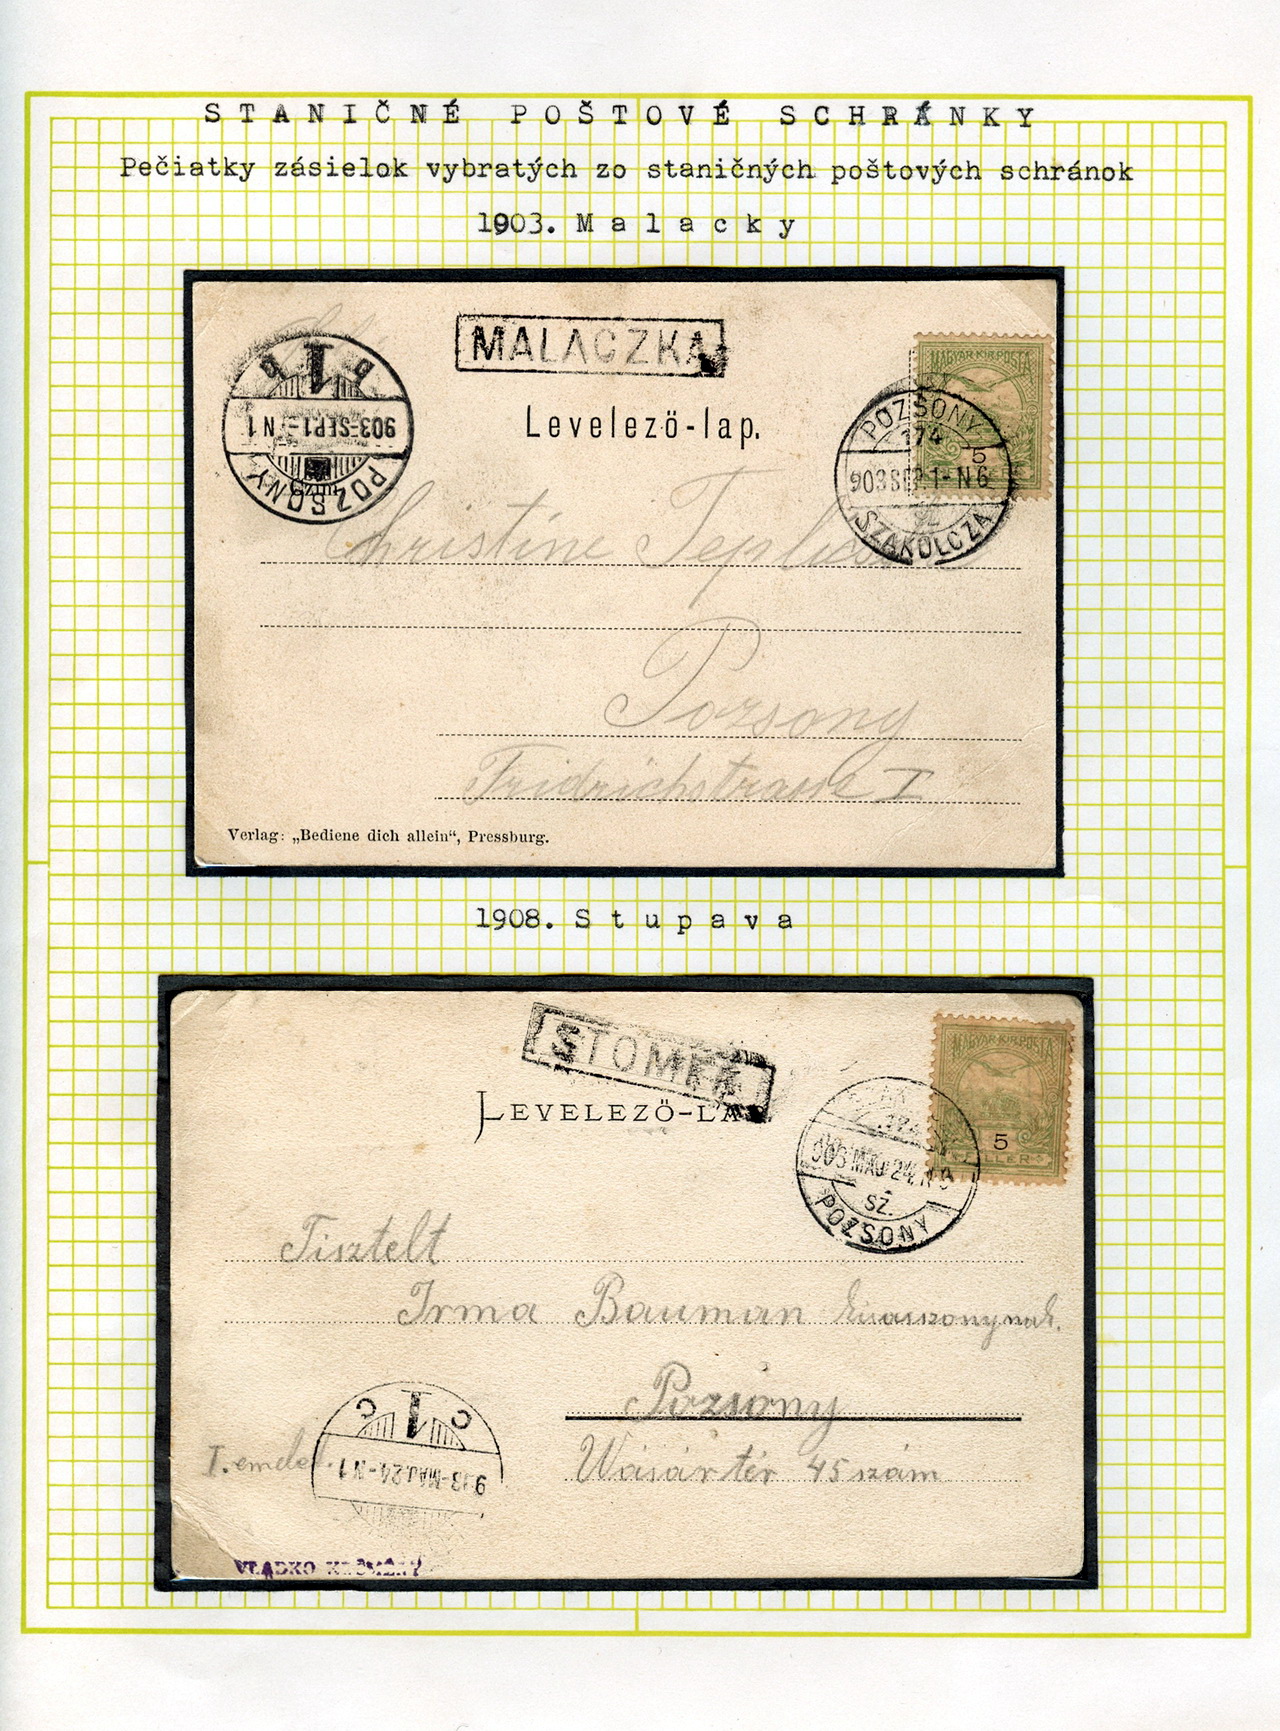 STANIČNÉ POŠTOVÉ SCHRÁNKY
Pečiatky zásielok vybratých zo staničných poštových schránok
1903. Malacky
MALACZKA
D 1 D
903-SEP1-N1
POZSONY
MAGYAR KIR. POSTA
5
POZSONY
174
903 SEP 1-N6
SZAKOLCZA
Levelező-lap.
Czim
Christine
Pozsony
Fridrichstrasse I
Verlag: „Bediene dich allein“, Pressburg.
1908. Stupava
STOMFA
MAGYAR KIR. POSTA
5
LEVELEZŐ-LAP
174
MAJ. 24.
SZ.
POZSONY
Tisztelt
Irma Bauman kisasszonynak.
Pozsony
Wásár tér 45 szám
I. emelet.
C 1 C
MAJ.24-N1
VLADKO